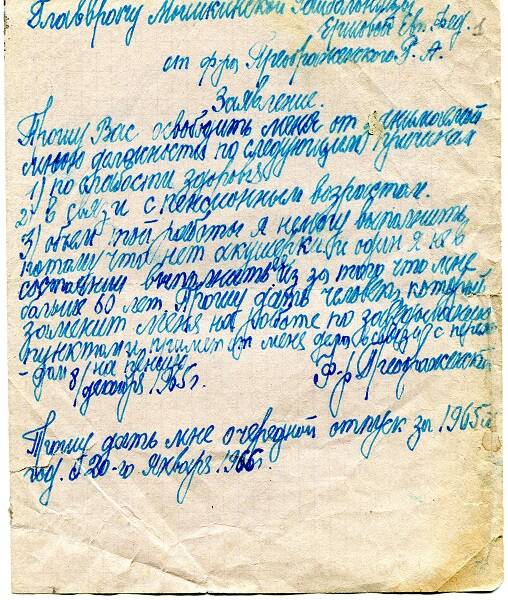 Главврачу Мышкинской Райбольницы
Ершовой Евг. Фед. 1
от ф-ра Преображенского Р. А.
Заявление.
Прошу Вас освободить меня от занимаемой
мною должности по следующим причинам
1) по слабости здоровья
2) в связи с пенсионным возрастом.
3) объем той работы я не могу выполнить
потому что нет акушерки и один я не в
состоянии выполнять из за того что мне
больше 60 лет. Прошу дать человека который
заменит меня на работе по заведыванию
пунктом и примет от меня дела в связи с перехо-
-дом на пенсию
8/декабря 1965 г. Ф-р Преображенский
Прошу дать мне очередной отпуск за 1965 й
год. с 20-го января 1966 г.